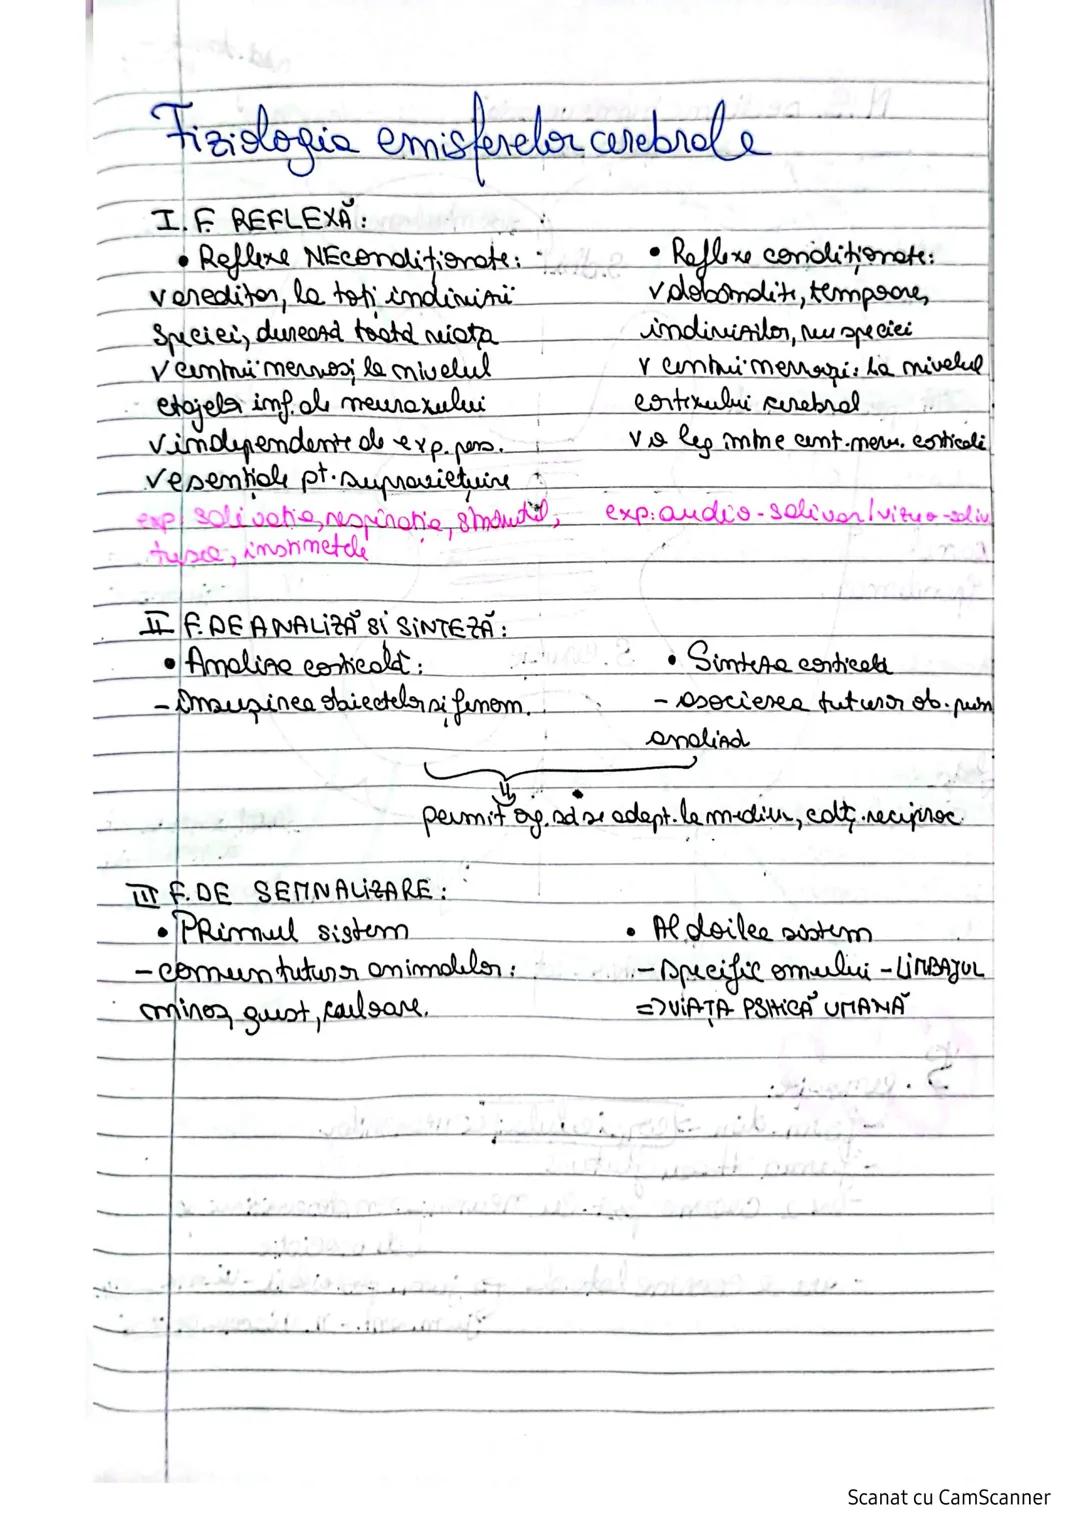 Fiziologia emisferelor cerebrale
I. F. REFLEXĂ:
• Reflexe NEcondiționate:
v ereditar, la toți indivizii
speciei, durează toată viața
v centrii nervoși la nivelul
etajelor inf. ale nevraxului
v independente de exp. pers.
v esențiale pt. supraviețuire
exp: salivația, respirația, strănutul,
tusea, instinctele
• Reflexe condiționate:
v dobândite, temporare,
indivizilor, nu speciei
v centrii nervoși: la nivelul
cortexului cerebral
v o leg între cent. nerv. corticali
exp: audio-salivar/vizuo-saliv
II F. DE ANALIZĂ SI SINTEZĂ:
• Analiza corticală:
- însușirea obiectelor și fenom.
• Sinteza corticală
- asocierea tuturor ob. prin
analiză
permit og. să se adapt. la mediu, colț. reciproc
III F. DE SEMNALIZARE:
• PRimul sistem
- comun tuturor animalelor:
miros, gust, culoare.
• Al doilea sistem
- specific omului - LIMBAJUL
=> VIAȚA PSIHICĂ UMANĂ
Scanat cu CamScanner